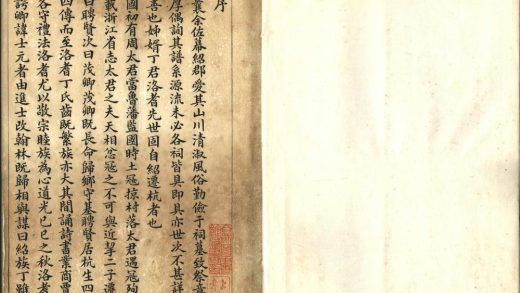 序
曩余佐幕紹郡愛其山川清淑風俗勤儉于祠墓致祭
厚偶詢其譜系源流未必各祠皆具即具亦世次不甚詳
善也姊婿丁君洛耆先世固自紹遷杭者也
國初有周太君當魯藩監國時土寇掠村落太君遇寇殉
載浙江省志太君之夫天相忿寇之不可與近挈二子遷
曰聘賢次曰茂卿茂卿既長命歸鄉守墓聘賢居杭生四
四傳而至洛耆丁氏齒既繁族亦大其間誦詩書業商賈
各守禮法洛耆尤以敬宗睦族為心道光己巳之秋洛耆
諤卿諱士元者由進士改翰林既歸相與謀曰紹族丁雖